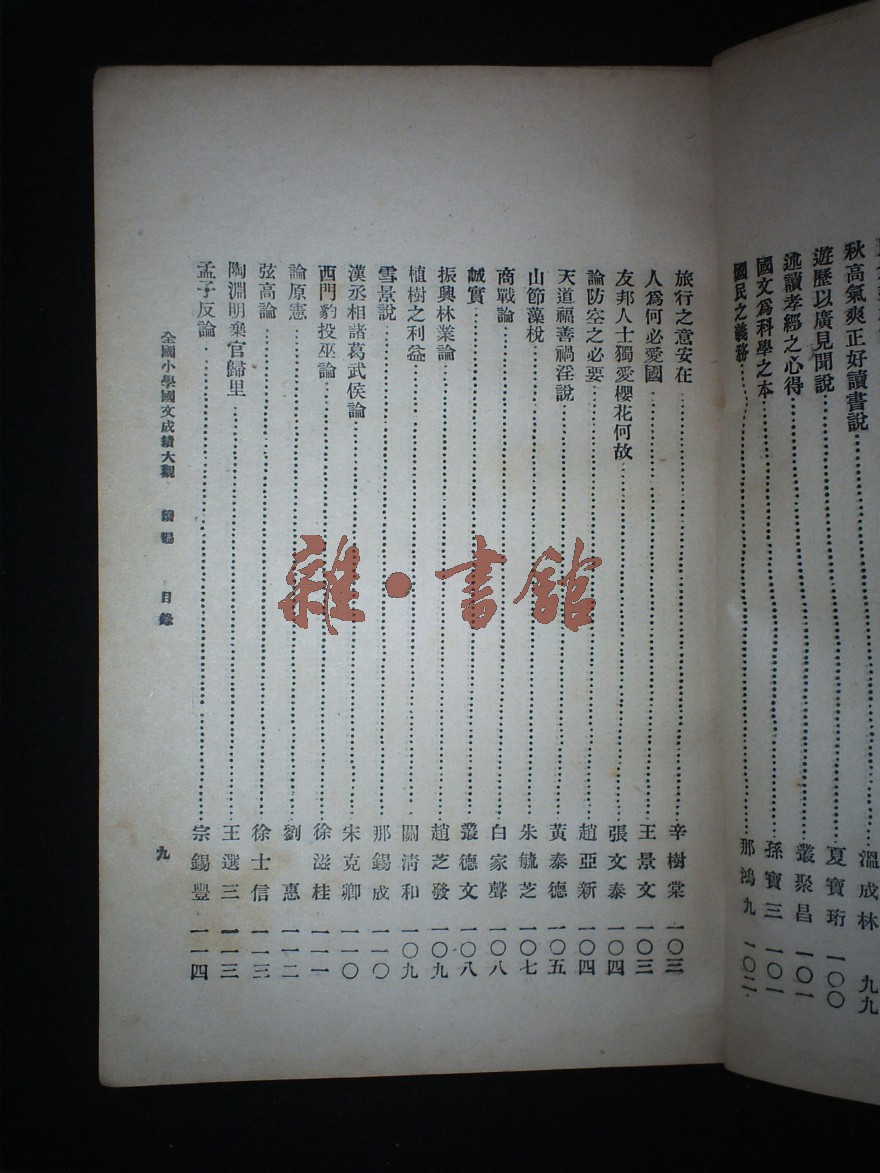 秋高氣爽正好讀書說 溫成林 九九
遊歷以廣見聞說 夏寶珩 一〇〇
述讀孝經之心得 叢聚昌 一〇一
國文爲科學之本 孫寶三 一〇一
國民之義務 那鴻九 一〇二
旅行之意安在 辛樹棠 一〇三
人爲何必愛國 王景文 一〇三
友邦人士獨愛櫻花何故 張文泰 一〇四
論防空之必要 趙亞新 一〇四
天道福善禍淫說 黃泰德 一〇五
山節藻梲 朱毓芝 一〇七
商戰論 白家聲 一〇八
誠實 叢德文 一〇八
振興林業論 趙芝發 一〇九
植樹之利益 關清和 一〇九
雪景說 那錫成 一一〇
漢丞相諸葛武侯論 宋克卿 一一〇
西門豹投巫論 徐滋桂 一一一
論原憲 劉惠 一一二
弦高論 徐士信 一一三
陶淵明棄官歸里 王選三 一一三
孟子反論 宗錫豐 一一四
全國小學國文成績大觀 續編 目錄 九
雜·書館